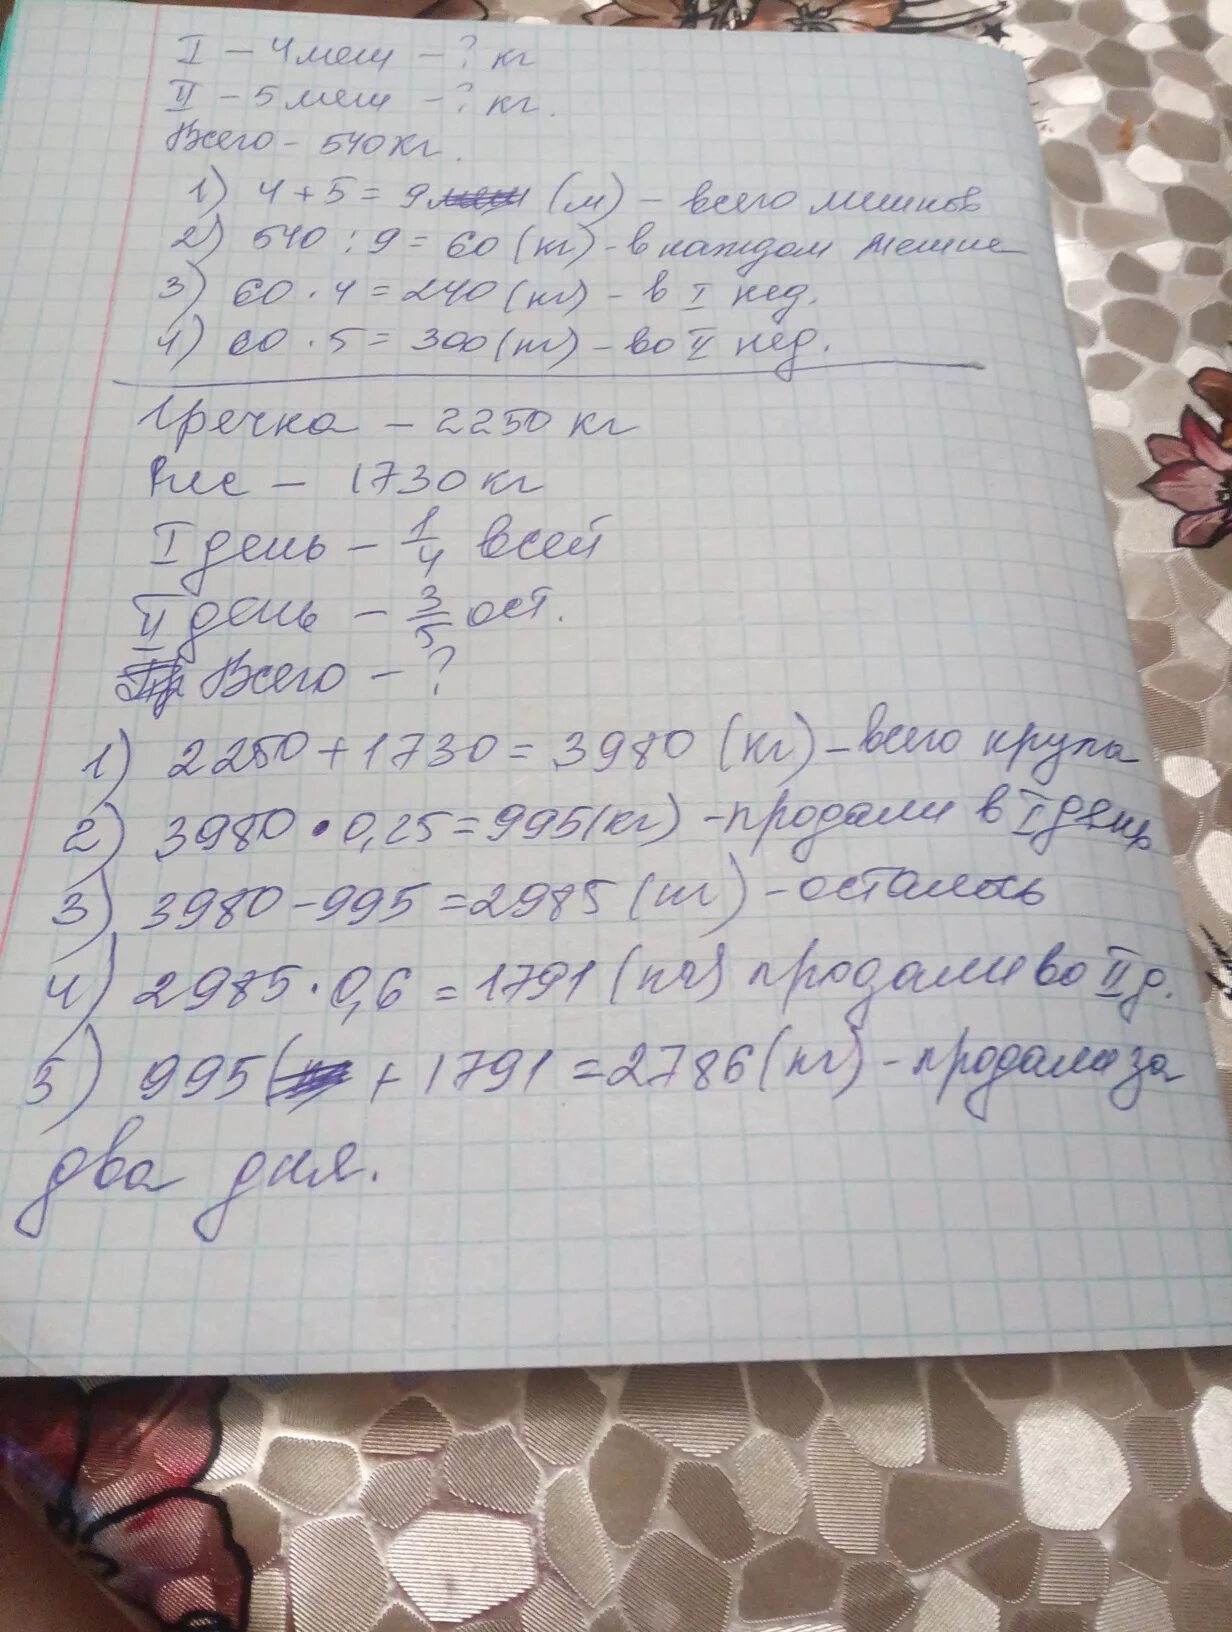 I – 4 меш – ? кг
II – 5 меш – ? кг.
Всего – 540 кг.
1) 4 + 5 = 9 (м) – всего мешков
2) 540 : 9 = 60 (кг) – в каждом мешке
3) 60 · 4 = 240 (кг) – в I нед.
4) 60 · 5 = 300 (кг) – во II нед.
Гречка – 2250 кг
Рис – 1730 кг
I день – 1/4 всей
II день – 3/5 ост.
Всего – ?
1) 2250 + 1730 = 3980 (кг) – всего крупа
2) 3980 · 0,25 = 995 (кг) – продали в I день
3) 3980 – 995 = 2985 (кг) – осталось
4) 2985 · 0,6 = 1791 (кг) продали во II д.
5) 995 + 1791 = 2786 (кг) – продали за
два дня.